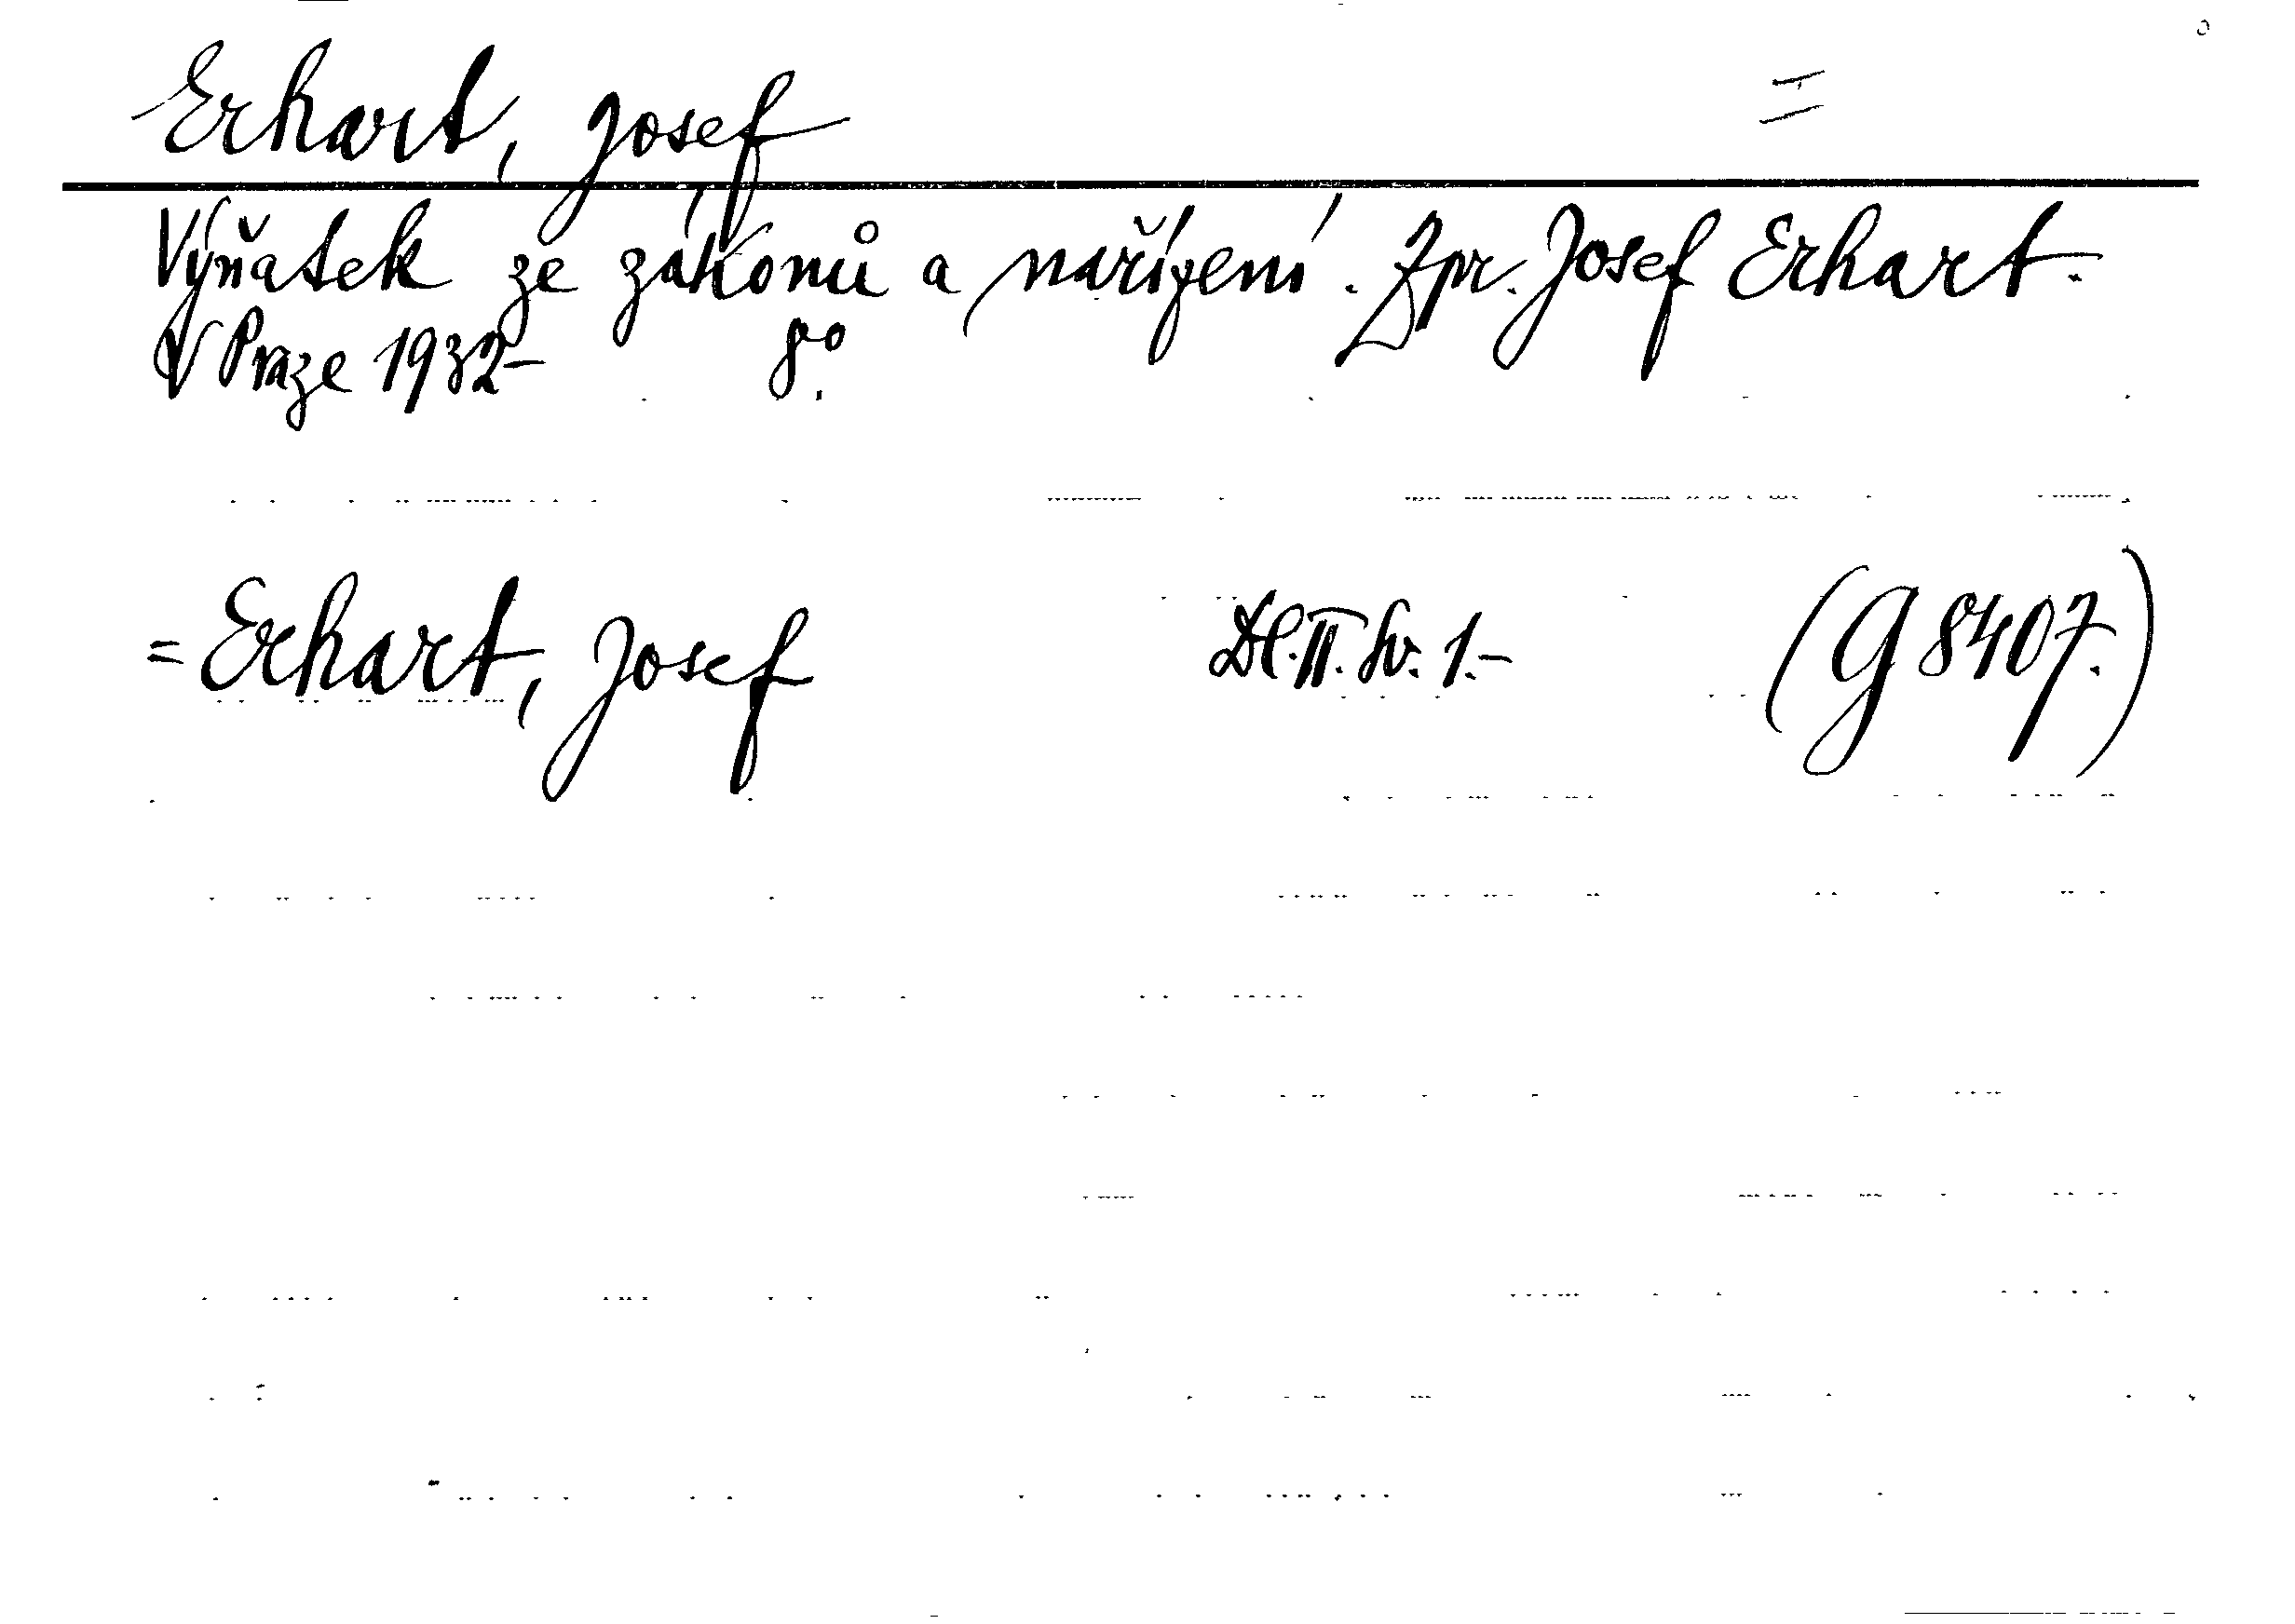 Erhart, Josef =
Výňatek ze zákonů a nařízení. Zpr. Josef Erhart.
V Praze 1932- 8°.
= Erhart, Josef Dl. II. sv. 1.- (G 8407.)